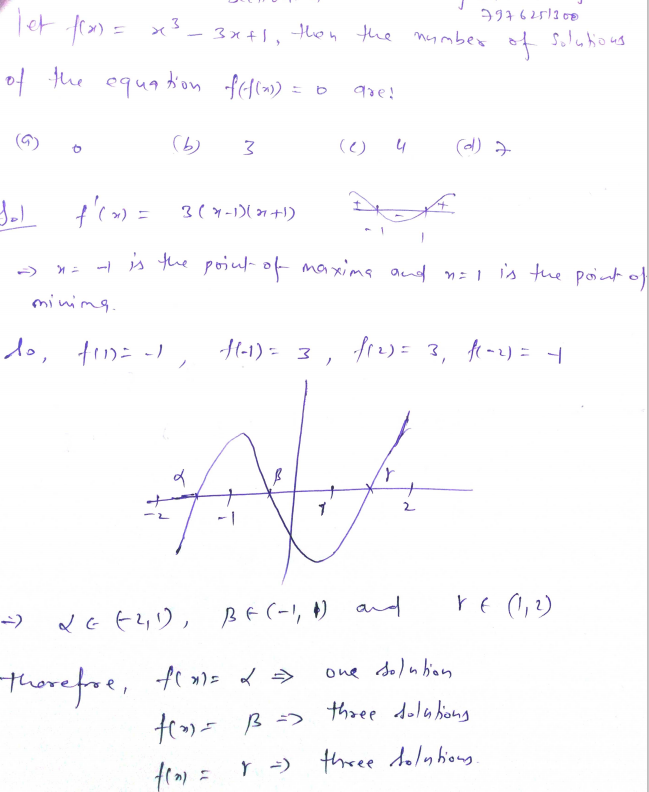 7976251300
let f(x) = x³ - 3x+1, then the number of solutions
of the equation f(f(x)) = 0 are:
(a) 0 (b) 3 (c) 4 (d) 7
Sol f'(x) = 3(x-1)(x+1)
+ - +
-1 1
⇒ x = -1 is the point of maxima and x=1 is the point of
minima.
So, f(1) = -1, f(-1) = 3, f(2) = 3, f(-2) = -1
α β γ
-2 -1 1 2
⇒ α ∈ (-2,1), β ∈ (-1, 1) and γ ∈ (1,2)
therefore, f(x) = α ⇒ one solution
f(x) = β ⇒ three solutions
f(x) = γ ⇒ three solutions.